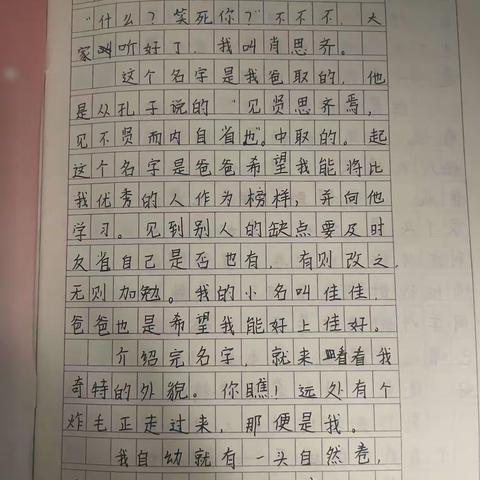 “什么？笑死你？”不不不，大
家听好了，我叫肖思齐。
这个名字是我爸取的，他
是从孔子说的“见贤思齐焉，
见不贤而内自省也”。中取的。起
这个名字是爸爸希望我能将比
我优秀的人作为榜样，并向他
学习。见到别人的缺点要及时
反省自己是否也有，有则改之，
无则加勉。我的小名叫佳佳，
爸爸也是希望我能好上佳好。
介绍完名字，就来看看我
奇特的外貌。你瞧！远处有个
炸毛正走过来，那便是我。
我自幼就有一头自然卷，